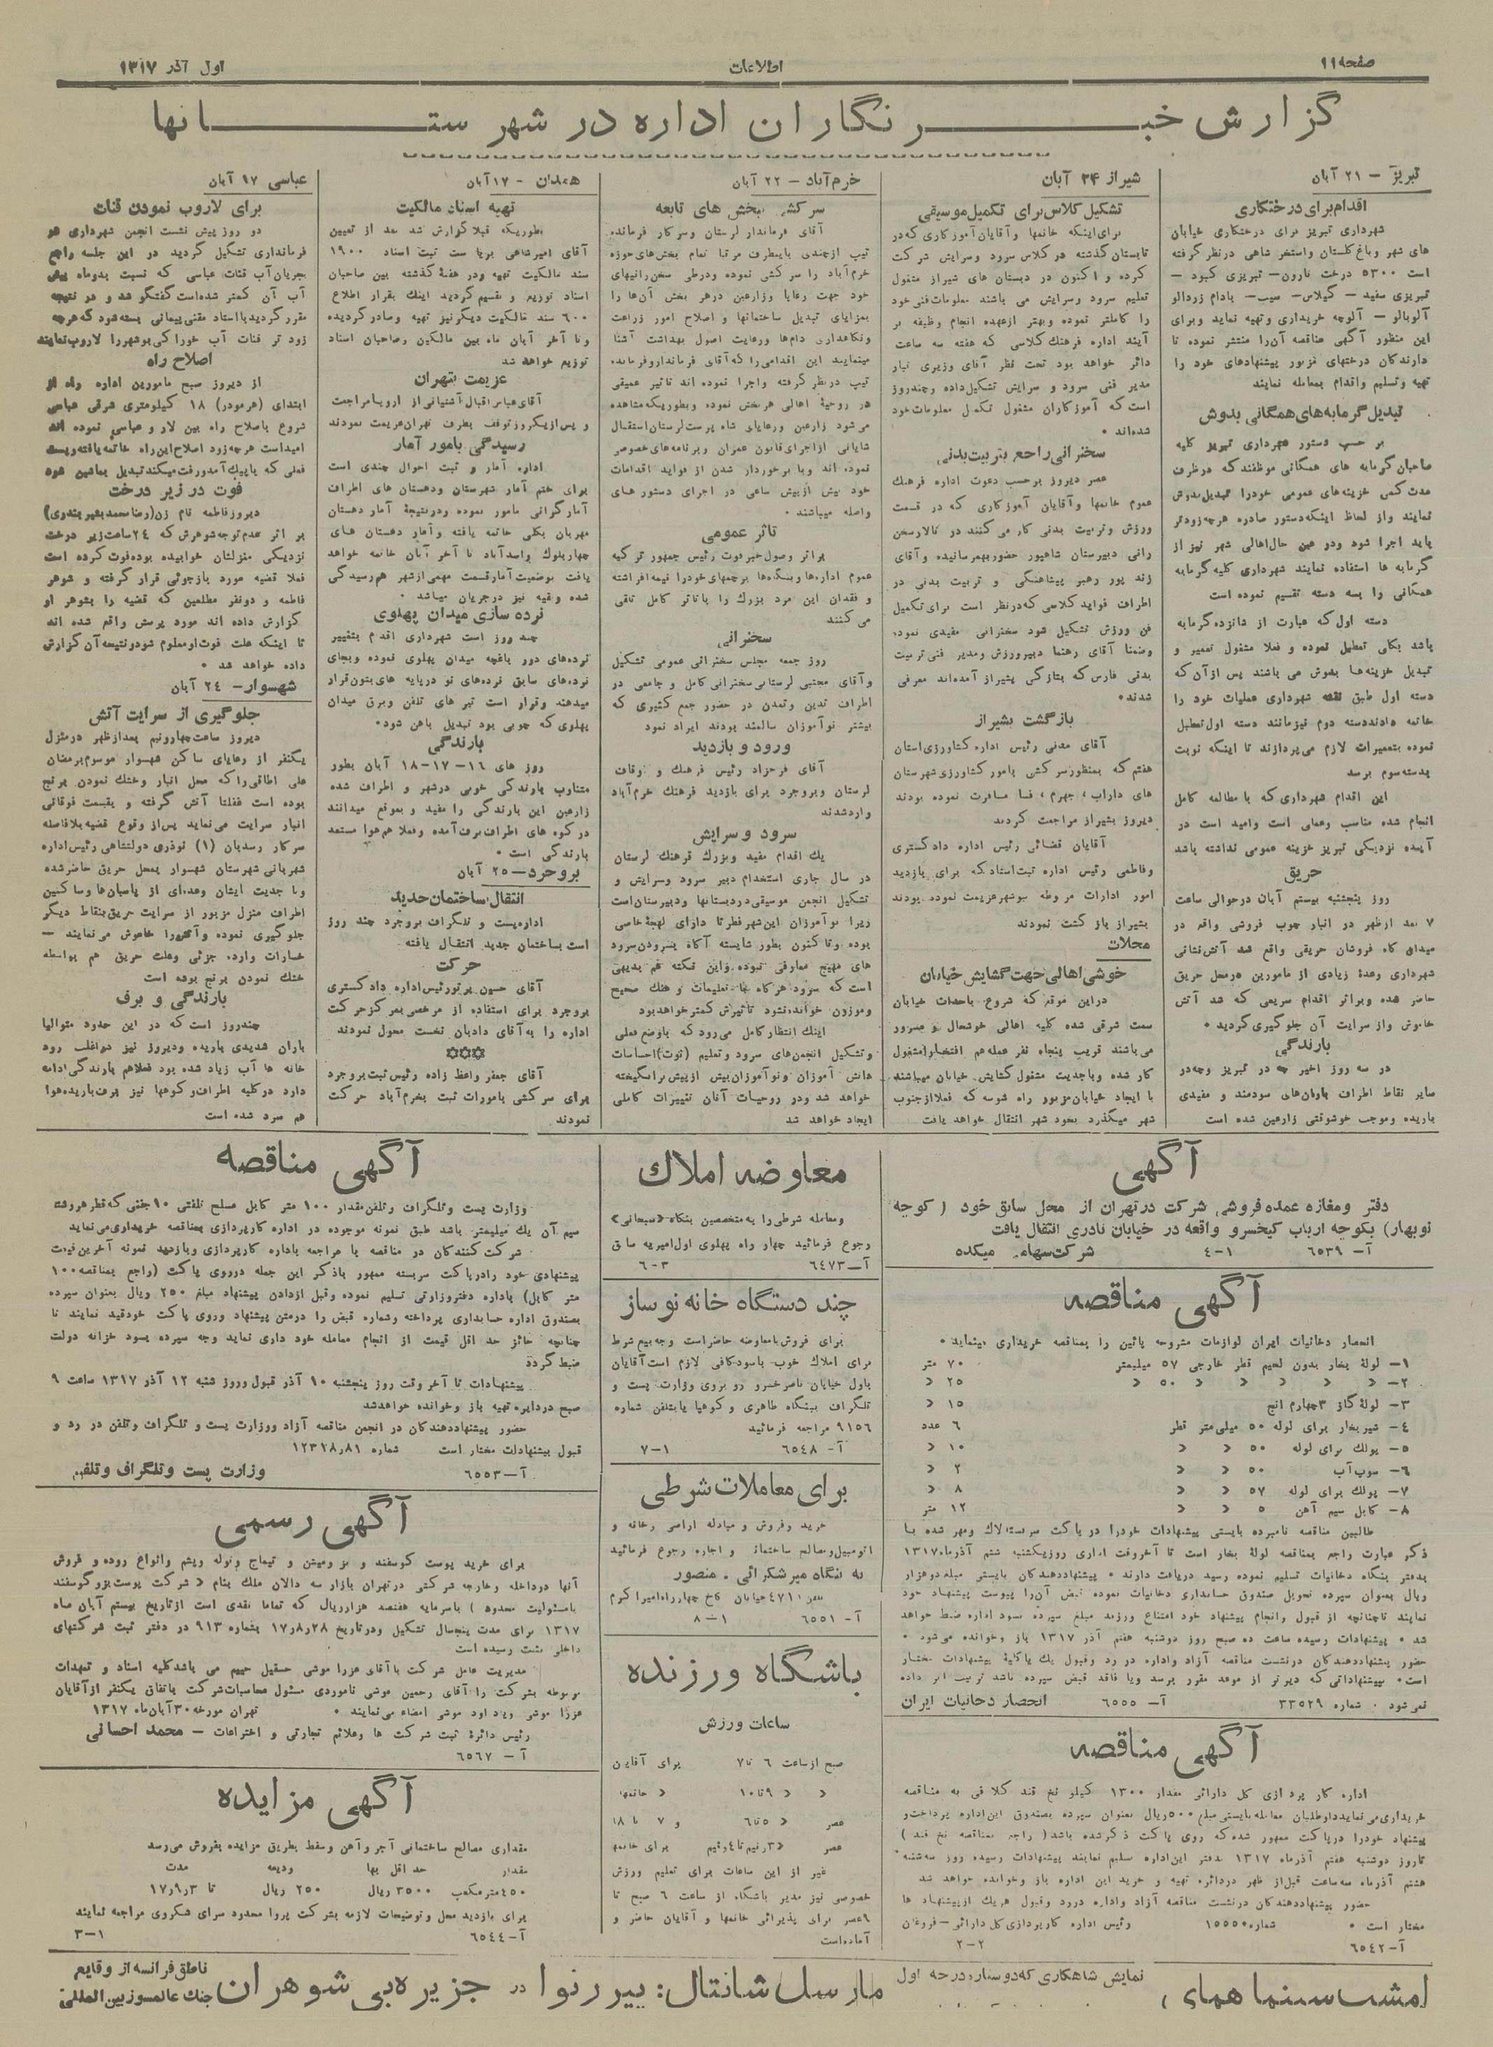 صفحه ۱۱
اطلاعات
اول آذر ۱۳۱۷
گزارش خبرنگاران اداره در شهرستانها
تبریز – ۲۱ آبان
اقدام برای درختکاری
شهرداری تبریز برای درختکاری خیابان
های شهر و باغ گلستان و استخر شاهی در نظر گرفته
است ۵۳۰۰ درخت نارون – تبریزی کبود –
تبریزی سفید – گیلاس – سیب – بادام زردآلو
آلوبالو – آلوچه خریداری و تهیه نماید و برای
این منظور آگهی مناقصه آن را منتشر نموده تا
دارندگان درختهای مزبور پیشنهادهای خود را
تهیه و تسلیم و اقدام بمعامله نمایند
تبدیل گرمابه های همگانی بدوش
بر حسب دستور شهرداری تبریز کلیه
صاحبان گرمابه های همگانی موظفند که در ظرف
مدت کمی خزینه های عمومی خود را تبدیل بدوش
نمایند و از لحاظ اینکه دستور صادره هرچه زودتر
باید اجرا شود و در عین حال اهالی شهر نیز از
گرمابه ها استفاده نمایند شهرداری کلیه گرمابه
همگانی را بسه دسته تقسیم نموده است
دسته اول که عبارت از شانزده گرمابه
باشد بکلی تعطیل نموده و فعلا مشغول تعمیر و
تبدیل خزینه ها بدوش می باشند پس از آن که
دسته اول طبق نقشه شهرداری عملیات خود را
خاتمه دادند دسته دوم نیز مانند دسته اول تعطیل
نموده بتعمیرات لازم می پردازند تا اینکه نوبت
بدسته سوم برسد
این اقدام شهرداری که با مطالعه کامل
انجام شده مناسب و عملی است و امید است در
آینده نزدیکی تبریز خزینه عمومی نداشته باشد
حریق
روز پنجشنبه بیستم آبان در حوالی ساعت
۷ بعد از ظهر در انبار چوب فروشی واقع در
میدان کاه فروشان حریقی واقع شد آتش نشانی
شهرداری و عدۀ زیادی از مامورین در محل حریق
حاضر شده و بر اثر اقدام سریعی که شد آتش
خاموش و از سرایت آن جلوگیری گردید *
بارندگی
در سه روز اخیر چه در تبریز و چه در
سایر نقاط اطراف بارانهای سودمند و مفیدی
باریده و موجب خوشوقتی زارعین شده است
شیراز ۲۴ آبان
تشکیل کلاس برای تکمیل موسیقی
برای اینکه خانمها و آقایان آموزگاری که در
تابستان گذشته در کلاس سرود و سرایش شرکت
کرده و اکنون در دبستان های شیراز مشغول
تعلیم سرود و سرایش می باشند معلومات فنی خود
را کاملتر نموده و بهتر از عهده انجام وظیفه بر
آیند اداره فرهنگ کلاسی که هفته سه ساعت
دائر خواهد بود تحت نظر آقای وزیری تبار
مدیر فنی سرود و سرایش تشکیل داده و چند روز
است که آموزگاران مشغول تکمیل معلومات خود
شده اند *
سخنرانی راجع بتربیت بدنی
عصر دیروز بر حسب دعوت اداره فرهنگ
عموم خانمها و آقایان آموزگاری که در قسمت
ورزش و تربیت بدنی کار می کنند در تالار سخن
رانی دبیرستان شاهپور حضور بهمرسانیده و آقای
زند پور رهبر پیشاهنگی و تربیت بدنی در
اطراف فواید کلاسی که در نظر است برای تکمیل
فن ورزش تشکیل شود سخنرانی مفیدی نمود،
و ضمنا آقای رهنما دبیر ورزش و مدیر فنی تربیت
بدنی فارس که بتازگی بشیراز آمده اند معرفی
شدند *
بازگشت بشیراز
آقای مدنی رئیس اداره کشاورزی استان
هفتم که بمنظور سرکشی بامور کشاورزی شهرستان
های داراب، جهرم، فسا مسافرت نموده بودند
دیروز بشیراز مراجعت کردند
آقایان قضائی رئیس اداره دادگستری
و فاطمی رئیس اداره ثبت اسناد که برای بازدید
امور ادارات مربوطه ببوشهر عزیمت نموده بودند
بشیراز بازگشت نمودند
محلات
خوشی اهالی جهت گشایش خیابان
در این موقع که شروع باحداث خیابان
سمت شرقی شده کلیه اهالی خوشحال و مسرور
می باشند قریب پنجاه نفر عمله هم افتخارا مشغول
کار شده و با جدیت مشغول گشایش خیابان میباشند
با ایجاد خیابان مزبور راه شوسه که فعلا از جنوب
شهر میگذرد بخود شهر انتقال خواهد یافت
خرم آباد – ۲۲ آبان
سرکشی ببخش های تابعه
آقای فرماندار لرستان و سرکار فرمانده
تیپ ارجمندی باینطرف مرتبا تمام بخش های حوزه
خرم آباد را سرکشی نموده و در طی سخنرانیهای
خود جهت رعایا و زارعین در هر بخش آن ها را
بمزایای تبدیل ساختمانها و اصلاح امور زراعت
و نگاهداری دام ها و رعایت اصول بهداشت آشنا
مینمایند این اقدامی را که آقای فرماندار و فرمانده
تیپ در نظر گرفته و اجرا نموده اند تاثیر عمیقی
در روحیۀ اهالی هر بخش نموده و بطوریکه مشاهده
می شود زارعین و رعایای شاه پرست لرستان استقبال
شایانی از اجرای قانون عمران و برنامه های خصوصی
نموده اند و با برخوردار شدن از فواید اقدامات
خود بیش از پیش ساعی در اجرای دستور های
واصله میباشند *
تاثر عمومی
بر اثر وصول خبر فوت رئیس جمهور ترکیه
عموم اداره ها و بنگاه ها پرچمهای خود را نیمه افراشته
و فقدان این مرد بزرگ را با تاثر کامل تلقی
می کنند
سخنرانی
روز جمعه مجلس سخنرانی عمومی تشکیل
و آقای مجتبی لرستانی سخنرانی کامل و جامعی در
اطراف تدین و تمدن در حضور جمع کثیری که
بیشتر نوآموزان سالمند بودند ایراد نمود
ورود و بازدید
آقای فرحزاد رئیس فرهنگ و اوقاف
لرستان و بروجرد برای بازدید فرهنگ خرم آباد
وارد شدند
سرود و سرایش
یک اقدام مفید و بزرگ فرهنگ لرستان
در سال جاری استخدام دبیر سرود و سرایش و
تشکیل انجمن موسیقی در دبستانها و دبیرستان است
زیرا نوآموزان این شهر فطرتا دارای لهجۀ خاصی
بوده و تاکنون بطور شایسته آگاه بسرودن سرود
های مهیج معارفی نبوده و این نکته هم بدیهی
است که سرود هرگاه با تعلیمات و هنگ صحیح
و موزون خوانده نشود تاثیرش کمتر خواهد بود
اینک انتظار کامل می رود که با وضع فعلی
و تشکیل انجمن های سرود و تعلیم (نوت) احساسات
دانش آموزان و نوآموزان بیش از پیش برانگیخته
خواهد شد و در روحیات آنان تغییرات کاملی
ایجاد خواهد شد
همدان – ۱۷ آبان
تهیه اسناد مالکیت
بطوریکه قبلا گزارش شد بعد از تعیین
آقای امیرشاهی بریاست ثبت اسناد ۱۹۰۰
سند مالکیت تهیه و در هفته گذشته بین صاحبان
اسناد توزیع و تقسیم گردید اینک بقرار اطلاع
۶۰۰ سند مالکیت دیگر نیز تهیه و صادر گردیده
و تا آخر آبان ماه بین مالکین و صاحبان اسناد
توزیع خواهد شد
عزیمت بتهران
آقای عباس اقبال آشتیانی از اروپا مراجعت
و پس از یکروز توقف بطرف تهران عزیمت نمودند
رسیدگی بامور آمار
اداره آمار و ثبت احوال چندی است
برای ختم آمار شهرستان و دهستان های اطراف
آمارگرانی مامور نموده و در نتیجه آمار دهستان
مهربان بکلی خاتمه یافته و آمار دهستان های
چهاربلوک و اسدآباد تا آخر آبان خاتمه خواهد
یافت بوضعیت آمار قسمت مهمی از شهر هم رسیدگی
شده و بقیه نیز در جریان میباشد *
نرده سازی میدان پهلوی
چند روز است شهرداری اقدام بتغییر
نرده های دور باغچه میدان پهلوی نموده و بجای
نرده های سابق نرده های نو در پایه های بتون قرار
میدهند و قرار است تیر های تلفن و برق میدان
پهلوی که چوبی بود تبدیل بآهن شود *
بارندگی
روز های ۱۶–۱۷–۱۸ آبان بطور
متناوب بارندگی خوبی در شهر و اطراف شده
زارعین این بارندگی را مفید و بموقع میدانند
در کوه های اطراف برف آمده و فعلا هم هوا مستعد
بارندگی است *
بروجرد – ۲۵ آبان
انتقال ساختمان جدید
اداره پست و تلگراف بروجرد چند روز
است بساختمان جدید انتقال یافته
حرکت
آقای حسین پرتو رئیس اداره دادگستری
بروجرد برای استفاده از مرخصی بمرکز حرکت
اداره را به آقای دادبان نخست محول نمودند
آقای جعفر واعظ زاده رئیس ثبت بروجرد
برای سرکشی بامورات ثبت بخرم آباد حرکت
نمودند
عباسی ۱۷ آبان
برای لاروب نمودن قنات
دو روز پیش نشست انجمن شهرداری در
فرمانداری تشکیل گردید در این جلسه راجع
بجریان آب قنات عباسی که نسبت بدو ماه پیش
آب آن کمتر شده است گفتگو شد و در نتیجه
مقرر گردید با استاد مقنی پیمانی بسته شود که هرچه
زود تر قنات آب خوراکی بوشهر را لاروب نمایند
اصلاح راه
از دیروز صبح مامورین اداره راه از
ابتدای (هرمودر) ۱۸ کیلومتری شرقی عباسی
شروع باصلاح راه بین لار و عباسی نموده اند
امید است هرچه زود اصلاح این راه خاتمه یافته و پست
فعلی که با پیک آمد و رفت میکند تبدیل بماشین شود
فوت در زیر درخت
دیروز فاطمه نام زن (رضا محمد بشیربندوی)
بر اثر عدم توجه شوهرش که ۲۴ ساعت زیر درخت
نزدیکی منزلشان خوابیده بوده فوت کرده است
فعلا قضیه مورد بازجوئی قرار گرفته و شوهر
فاطمه و دو نفر مطلعین که قضیه را بشوهر او
گزارش داده اند مورد پرسش واقع شده اند
تا اینکه علت فوت او معلوم شود و نتیجه آن گزارش
داده خواهد شد *
شهسوار – ۲۴ آبان
جلوگیری از سرایت آتش
دیروز ساعت چهار و نیم بعد از ظهر در منزل
یکنفر از رعایای ساکن شهسوار موسوم برمضان
علی اطاقی را که محل انبار و خشک نمودن برنج
بوده است غفلتا آتش گرفته و بقسمت فوقانی
انبار سرایت می نماید پس از وقوع قضیه بلافاصله
سرکار رسدبان (۱) نوذری دولتشاهی رئیس اداره
شهربانی شهرستان شهسوار بمحل حریق حاضر شده
و با جدیت ایشان و عده ای از پاسبان ها و ساکنین
اطراف منزل مزبور از سرایت حریق بنقاط دیگر
جلوگیری نموده و آتش را خاموش می نمایند –
خسارات وارده جزئی و علت حریق هم بواسطه
خشک نمودن برنج بوده است
بارندگی و برف
چند روز است که در این حدود متوالیا
باران شدیدی باریده و دیروز نیز در اغلب رود
خانه ها آب زیاد شده بود فعلا هم بارندگی ادامه
دارد در کلیه اطراف و کوهها نیز برف باریده هوا
هم سرد شده است
آگهی
دفتر و مغازه عمده فروشی شرکت در تهران از محل سابق خود (کوچه
نوبهار) بکوچه ارباب کیخسرو واقعه در خیابان نادری انتقال یافت
آ– ۶۵۳۹ ۱–۴ شرکت سهامی میکده
آگهی مناقصه
انحصار دخانیات ایران لوازمات مشروحه پائین را بمناقصه خریداری مینماید *
۱– لولۀ بخار بدون لحیم قطر خارجی ۵۷ میلیمتر ۷۰ متر
۲– « « « « « ۵۰ « ۲۵ «
۳– لولۀ گاز ۳ چهارم انچ ۱۵ «
۴– شیر بخار برای لوله ۵۰ میلی متر قطر ۶ عدد
۵– بولک برای لوله ۵۰ « « ۱۰ «
۶– سوپ آب ۵۰ « « ۲ «
۷– بولک برای لوله ۵۷ « « ۸ «
۸– کابل سیم آهن ۵ « « ۱۲ متر
طالبین مناقصه نامبرده بایستی پیشنهادات خود را در پاکت سربسته لاک و مهر شده با
ذکر عبارت راجع بمناقصه لولۀ بخار است تا آخر وقت اداری روز یکشنبه ششم آذرماه ۱۳۱۷
بدفتر بنگاه دخانیات تسلیم نموده رسید دریافت دارند * پیشنهاددهندگان بایستی مبلغ دو هزار
ریال بعنوان سپرده تحویل صندوق حسابداری دخانیات نموده قبض آن را پیوست پیشنهاد خود
نمایند تا چنانچه از قبول و انجام پیشنهاد خود امتناع ورزند مبلغ سپرده بسود اداره ضبط خواهد
شد * پیشنهادات رسیده ساعت ده صبح روز دوشنبه هفتم آذر ۱۳۱۷ باز و خوانده می شود *
حضور پیشنهاددهندگان در نشست مناقصه آزاد و اداره در رد و قبول یک یا کلیۀ پیشنهادات مختار
است * پیشنهاداتی که دیرتر از موعد مقرر برسد و یا فاقد قبض سپرده باشد ترتیب اثر داده
نمی شود * شماره ۳۳۵۲۹ آ– ۶۵۵۵ انحصار دخانیات ایران
آگهی مناقصه
اداره کارپردازی کل دارائی مقدار ۱۳۰۰ کیلو نخ قند کلافی به مناقصه
خریداری می نماید داوطلبان معامله بایستی مبلغ ۵۰۰ ریال بعنوان سپرده بصندوق این اداره پرداخت و
پیشنهاد خود را در پاکت ممهور شده که روی پاکت ذکر شده باشد (راجع بمناقصه نخ قند)
تا روز دوشنبه هفتم آذرماه ۱۳۱۷ بدفتر این اداره تسلیم نمایند پیشنهادات رسیده روز سه شنبه
هشتم آذرماه سه ساعت قبل از ظهر در دائره تهیه و خرید این اداره باز و خوانده خواهد شد
حضور پیشنهاددهندگان در نشست مناقصه آزاد و اداره در رد و قبول هر یک از پیشنهاد ها
مختار است * شماره ۱۵۵۵۰ رئیس اداره کارپردازی کل دارائی – فروغان
آ– ۶۵۴۲ ۲–۲
معاوضه املاک
و معامله شرطی را به متخصصین بنگاه «سبحانی»
رجوع فرمائید چهار راه پهلوی اول امیریه سابق
آ– ۶۴۷۳ ۳–۶
چند دستگاه خانه نوساز
برای فروش یا معاوضه حاضر است وجه بیع شرط
برای املاک خوب با سود کافی لازم است آقایان
باول خیابان ناصرخسرو روبروی وزارت پست و
تلگراف بنگاه طاهری و کوهپا یا بتلفن شماره
۹۱۵۶ مراجعه فرمائید
آ– ۶۵۴۸ ۱–۷
برای معاملات شرطی
خرید و فروش و مبادله اراضی و خانه و
اتومبیل و مصالح ساختمانی و اجاره رجوع فرمائید
به بنگاه میر شکرائی . منصور
تلفن ۴۷۱۰ خیابان کاخ چهارراه امیراکرم
آ– ۶۵۵۱ ۱–۸
باشگاه ورزنده
ساعات ورزش
صبح از ساعت ۶ تا ۷ برای آقایان
« « ۹ تا ۱۰ « خانمها
عصر « ۵ تا ۶ و ۷ تا ۱۸
عصر « ۳ و نیم تا ۴ و نیم برای خانمها
غیر از این ساعات برای تعلیم ورزش
خصوصی نیز مدیر باشگاه از ساعت ۶ صبح تا
۹ عصر برای پذیرائی خانمها و آقایان حاضر و
آماده است
آگهی مناقصه
وزارت پست و تلگراف و تلفن مقدار ۱۰۰ متر کابل مسلح تلفنی ۱۰ جفتی که قطر هر رشته
سیم آن یک میلیمتر باشد طبق نمونه موجوده در اداره کارپردازی بمناقصه خریداری می نماید
شرکت کنندگان در مناقصه با مراجعه باداره کارپردازی و بازدید نمونه آخرین قیمت
پیشنهادی خود را در پاکت سربسته ممهور با ذکر این جمله در روی پاکت (راجع بمناقصه ۱۰۰
متر کابل) باداره دفتر وزارتی تسلیم نموده و قبل از دادن پیشنهاد مبلغ ۲۵۰ ریال بعنوان سپرده
بصندوق اداره حسابداری پرداخته و شماره قبض را در متن پیشنهاد و روی پاکت خود قید نمایند تا
چنانچه حائز حد اقل قیمت از انجام معامله خود داری نماید وجه سپرده بسود خزانه دولت
ضبط گردد
پیشنهادات تا آخر وقت روز پنجشنبه ۱۰ آذر قبول و روز شنبه ۱۲ آذر ۱۳۱۷ ساعت ۹
صبح در دایره تهیه باز و خوانده خواهد شد
حضور پیشنهاددهندگان در انجمن مناقصه آزاد و وزارت پست و تلگراف و تلفن در رد و
قبول پیشنهادات مختار است شماره ۱۲۳۱۸٫۸۱
آ– ۶۵۵۳ وزارت پست و تلگراف و تلفن
آگهی رسمی
برای خرید پوست گوسفند و بز و میشن و تیماج و توله و پشم و انواع روده و فروش
آنها در داخله و خارجه شرکتی در تهران بازار سه دالان ملک بنام «شرکت پوست بز و گوسفند
با مسئولیت محدود) با سرمایه هفتصد هزار ریال که تماما نقدی است از تاریخ بیستم آبان ماه
۱۳۱۷ برای مدت پنجسال تشکیل و در تاریخ ۱۷٫۸٫۲۸ بشماره ۹۱۳ در دفتر ثبت شرکتهای
داخلی بثبت رسیده است
مدیریت عامل شرکت با آقای عزرا موشی حسقیل حییم می باشد کلیه اسناد و تعهدات
مربوطه بشرکت را آقای رحمین موشی ناموردی مسئول محاسبات شرکت باتفاق یکنفر از آقایان
عزرا موشی و یا داود موشی امضاء می نمایند * تهران مورخه ۳۰ آبان ماه ۱۳۱۷
رئیس دائرۀ ثبت شرکت ها و علائم تجارتی و اختراعات – محمد احسائی
آ– ۶۵۶۷
آگهی مزایده
مقداری مصالح ساختمانی آجر و آهن و سقط بطریق مزایده بفروش می رسد
مقدار حد اقل بها ودیعه مدت
۴۵۰ متر مکعب ۳۵۰۰ ریال ۲۵۰ ریال تا ۱۷٫۹٫۳
برای بازدید محل و توضیحات لازمه بشرکت پروا محدود سرای شکروی مراجعه نمایند
آ– ۶۵۴۴ ۱–۳
امشب سینما همای
نمایش شاهکاری که دو ستاره درجه اول
مارسل شانتال: پیر رنوا در جزیره بی شوهران
ناطق فرانسه از وقایع
جنگ عالمسوز بین المللی